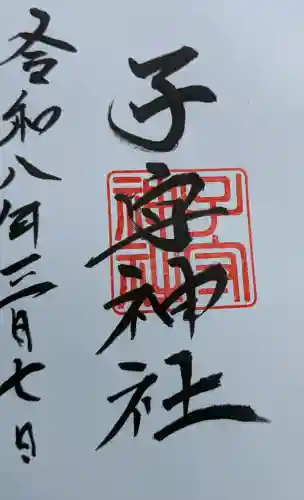 子守神社
令和八年三月七日
子守
神社